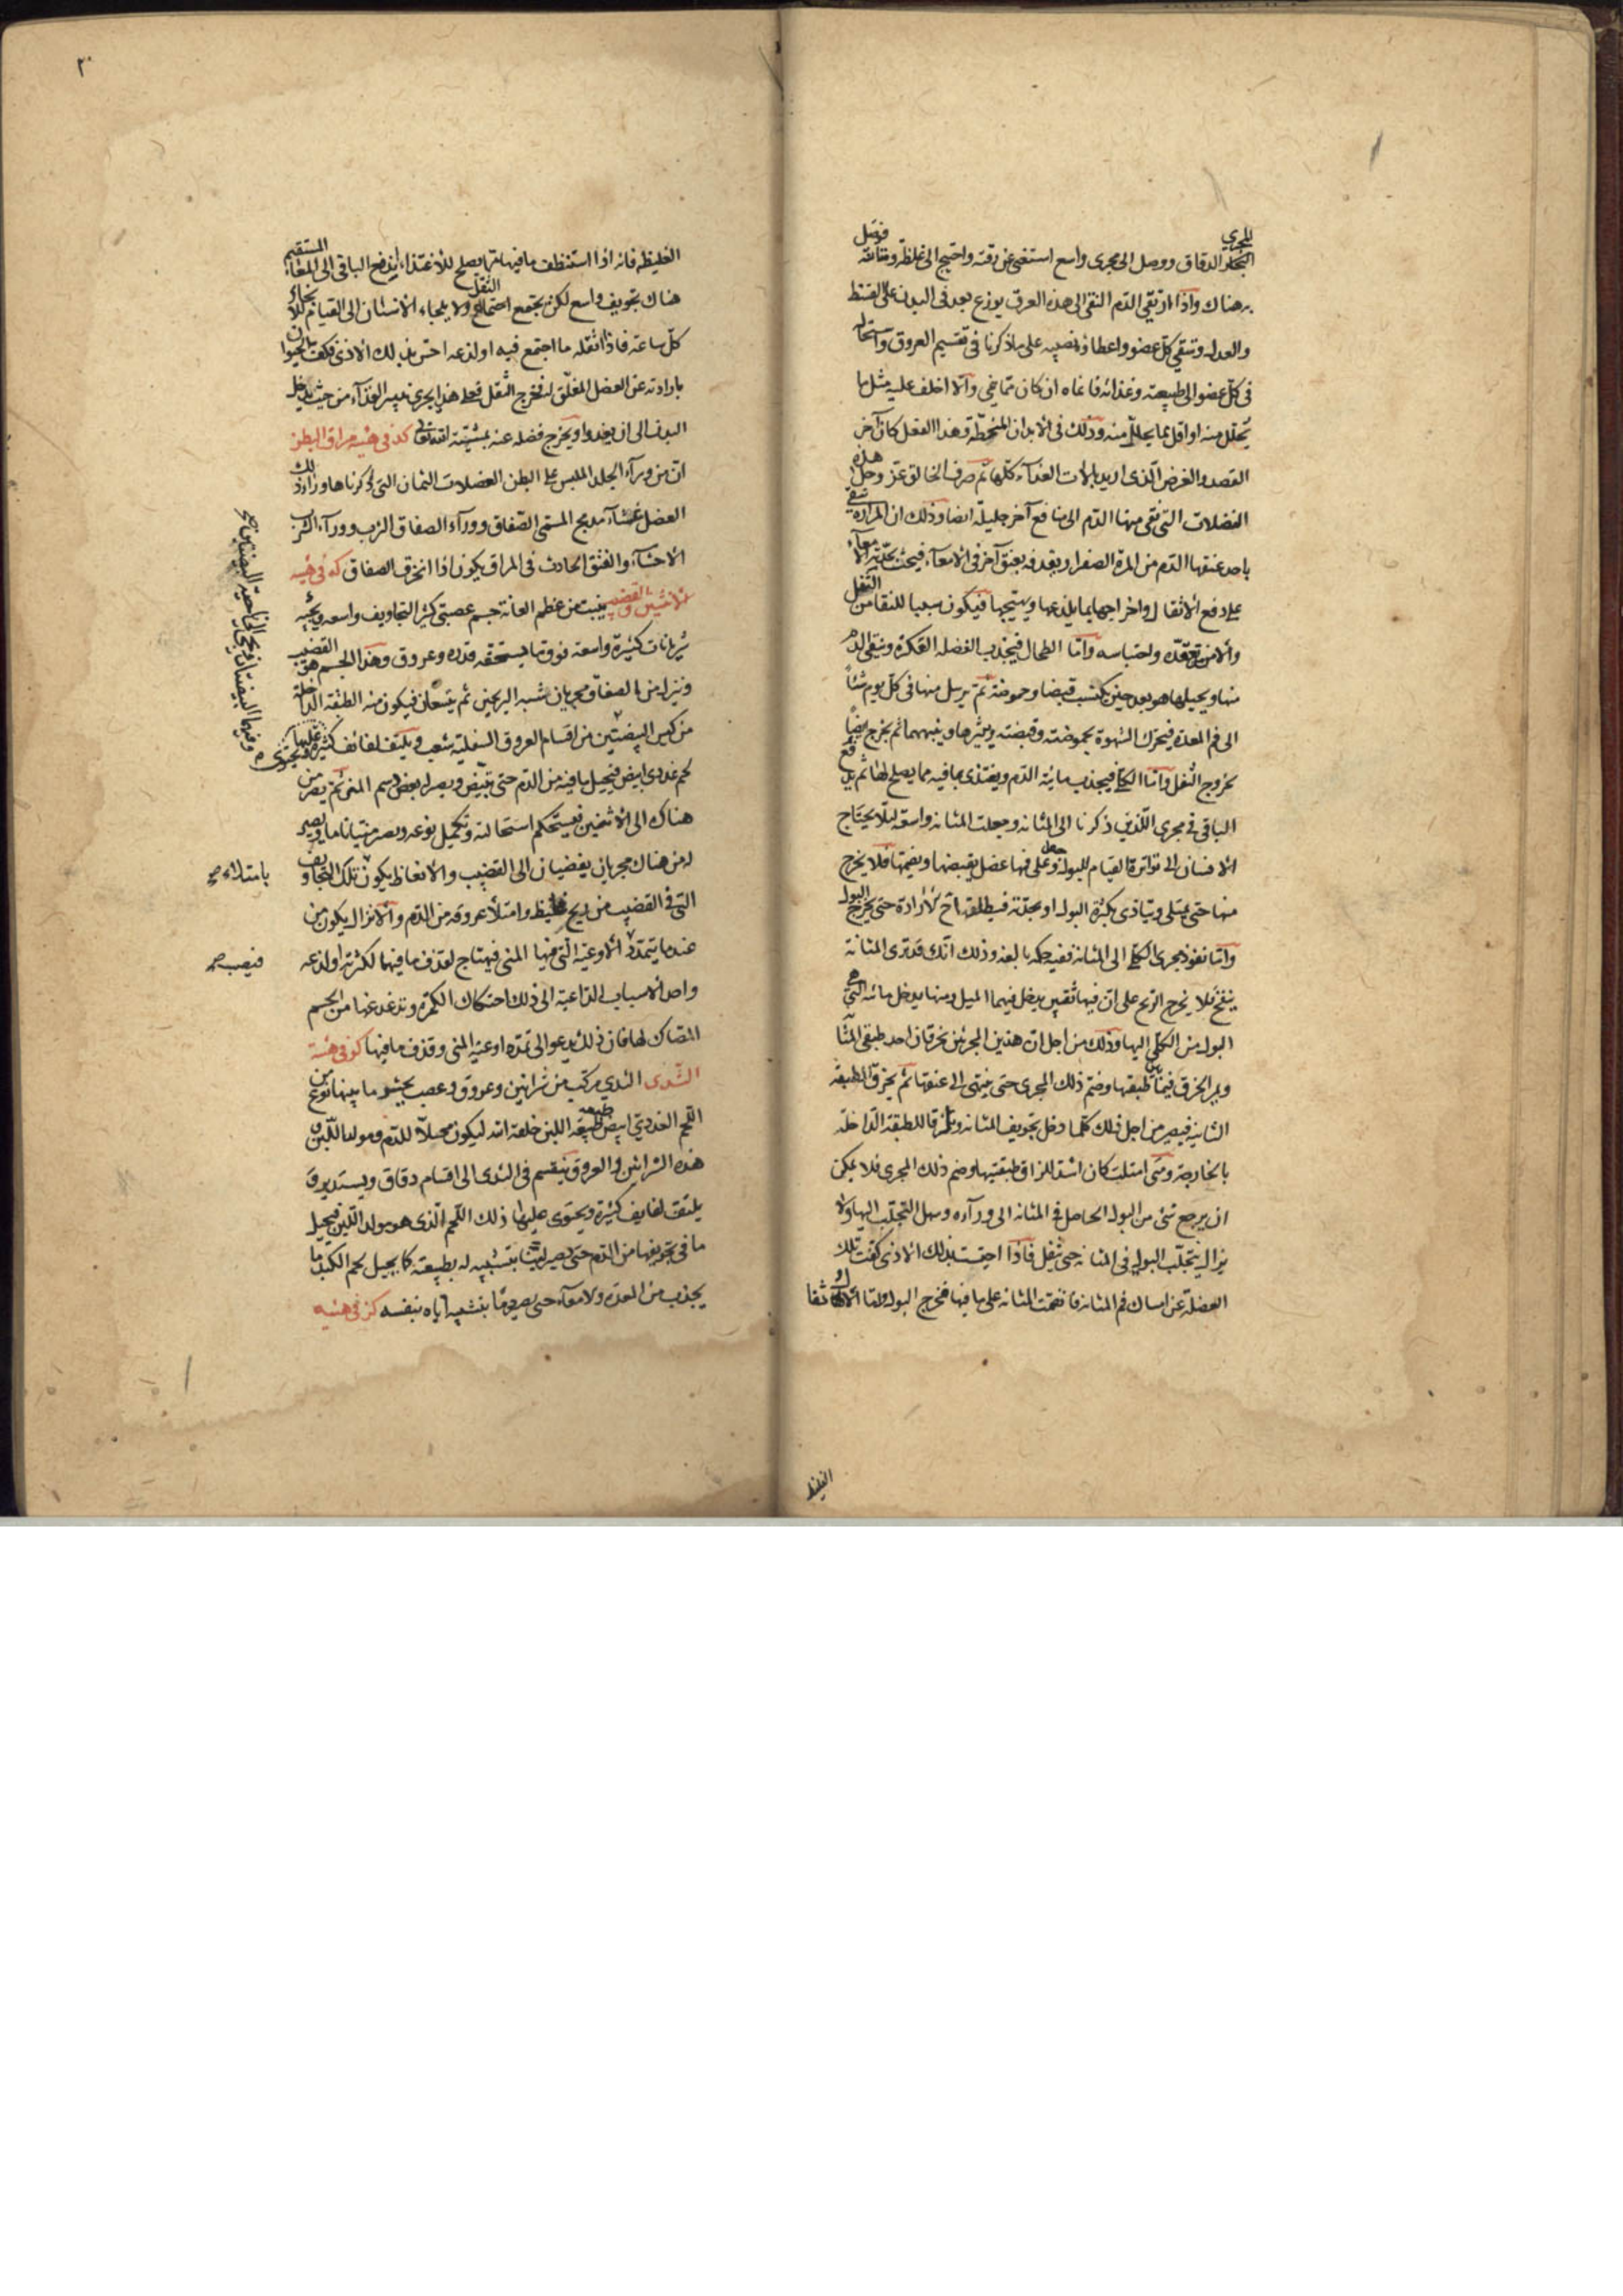 المجاري الدقاق ووصل الى مجرى واسع استغنى عن رقته واحتيج الى غلظه ومتانته فوصل
به هناك واذا ارتقى الدم النقى الى هذه العرق يوزع بعد في البدن على القسط
والعدل وتسقي كل عضو واعطا نصيبه على ما ذكرنا في تقسيم العروق واستحال
في كل عضو الى طبيعته وغذائه فانماه ان كان مما ينمي والا اخلف عليه مثل ما
تحلل منه او اقل مما يحلل منه وذلك في الابدان المنحطة وهذا الفعل كان آخر
القصد والغرض الذى اريد بالات الغذاء كلها ثم صرف الخالق عز وجل هذه
الفضلات التى نقى منها الدم الى منافع آخر جليلة ايضا وذلك ان المرارة تنقي
باحد عنقها الدم من المرة الصفرا ويقذفه بعنق آخر في الامعاء فيحث بحدته الامعاء
على دفع الاثقال واخراجها بما يلذعها ويهيجها فيكون سببا للنقا من الثفل
والامن من تعقده واحتباسه واما الطحال فيجذب الفضله العكرة وينقى الدم
منها ويحيلها هو بعد حين يكتسب قبضا وحموضة ثم يرسل منها في كل يوم شئا
الى فم المعدة فيحرك الشهوة بحموضته وقبضته ويثيرها وينبهها ثم يخرج ايضا
بخروج الثفل واما الكلى فيجذب مائية الدم ويغتذى بما فيه مما يصلح لها ثم يدفع
الباقى في مجرى اللذين ذكرنا الى المثانة وجعلت المثانه واسعة ليلا يحتاج
الانسان الى تواتره القيام للبول وجعل على فمها عضل يقبضها ويضمها فلا يخرج
منها حتى يمتلى ويتاذى بكثرة البول او بحدته فيطلقه اخ الارادة حتى يخرج البول
واما نفوذ مجرى الكلى الى المثانه ففيه حكمه بالغه وذلك انك قد ترى المثانة
ينفخ فلا يخرج الريح على ان فيها ثقبين يدخل فيهما الميل ومنها يدخل مائه التي هى
البول من الكلى اليها وذلك من اجل ان هذين المجرئين يخرقان احد طبقتى المثا
ويمر الخرق فيما بين طبقتها وضم ذلك المجرى حتى ينتهى الى عنقها ثم يخرق الطبقه
الثانية فيصير من اجل ذلك كلما دخل تجويف المثانه ويلزقا للطبقه الداخلة
بالخارجة ومتى امتلت كان اشد للزاق طبقتيها وضم ذلك المجرى فلا يمكن
ان يرجع شئ من البول الحاصل في المثانه الى ورآءه وسهل التجلب اليها ولا
يزال يتجلب البول في المثانه حتى تثقل فاذا احيت بذلك الاذى كفت تلك
العضلة عن امساك فم المثانه فانضمت المثانه على ما فيها فخرج البول واما
الغليظ
٢٠
الغليظه فانه اذا استنظف ما فيها مما يصلح للاغتذاء اندفع الباقى الى المعاء المستقيم
هناك تجويف واسع لكى يجتمع الثفل ولا يلجاء الانسان الى القيام للانجاء
كل ساعة فاذا اثقله ما اجتمع فيه او لذعه احس بذلك الاذى فكف الحيوان
بارادته عن العضل المغلق له فخرج الثفل فعلى هذا يجرى تدبير الغذآء من حيث يدخل
البدن الى ان يغدوا ويخرج فضله عنه بمشيئة الله تعالى كد في هئيه مراق البطن
ان من ورآء الجلد الملبس على البطن العضلات الثمان التى ذكرناها وزاد ذلك
العضل غشاء مدبج المسمى الصفاق وورآء الصفاق الثرب وورآء الثرب
الاحشآء والفتق الحادث في المراق يكون اذا انخرق الصفاق كه في هيئه
الانثيين والقضيب ينبت من عظم العانة جسم عصبي كثير التجاويف واسعه ويجيه
شريانات كثيرة واسعة فوق ما يستحقه قدره وعروق وهذا الجسم هو القضيب
وينزل من الصفاق مجريان شبه البربخين ثم يتسعان فيكون منه الطبقة الداخلة
من كيس البيضتين من اقسام العروق السفلية شعب ويلتف لفائف كثيرة ويحتوى عليها
لحم غددى ابيض فيحيل ما فيه من الدم حتى يتبيض ويصير له بعض رسم المنى ثم يصير من
هناك الى الانثيين فيستحكم استحالته ويكمل نوعه ويصير منيا تاما ويصير
له من هناك مجريان يفضيان الى القضيب والانعاظ يكون تلك التجاويف
التى في القضيب من ريح غليظ وامتلاء عروقه من الدم والانزال يكون من
عندما يتمدد الاوعية التى فيها المنى فيهتاج لقذف ما فيها لكثرته او لذعه
واحد الاسباب الداعية الى ذلك احتكاك الكمرة وتدغدغها من الجسم
المصاك لها فان ذلك يدعو الى تمدد اوعية المنى وقذف ما فيها كو في هئية
الثدى الثدي مركب من شرائين وعروق وعصب يحشو ما بينها نوع من
اللحم الغددي ابيض طبيعة اللبن خلقه الله ليكون محيلا للدم ومولدا للبن و
هذه الشرائين والعروق ينقسم في الثدى الى اقسام دقاق ويستدير و
يلتف لفايف كثيرة ويحتوى عليها ذلك اللحم الذى هو مولد اللبن فيحيل
ما في تجويفها من الدم حتى يصير لبنا بتشبيه له بطبيعته كما يحيل لحم الكبد ما
يجذب من المعدة والامعآء حتى يصير دما بتشبيه اياه بنفسه كز في هئيه
بامتلاء صح
فيصب صح